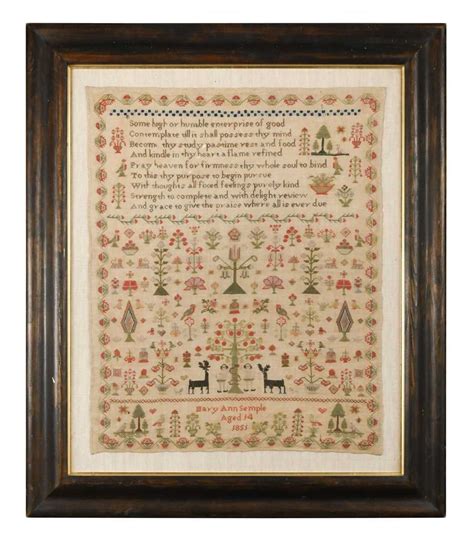 Some high or humble enterprise of good
Contemplate till it shall possess thy mind
Become thy study pastime rest and food
And kindle in thy heart a flame refined
Pray heaven for firmness thy whole soul to bind
To this thy purpose to begin pursue
With thoughts all fixed feelings purely kind
Strength to complete and with delight review
And grace to give the praise where all is ever due
Mary Ann Semple
Aged 14
1851